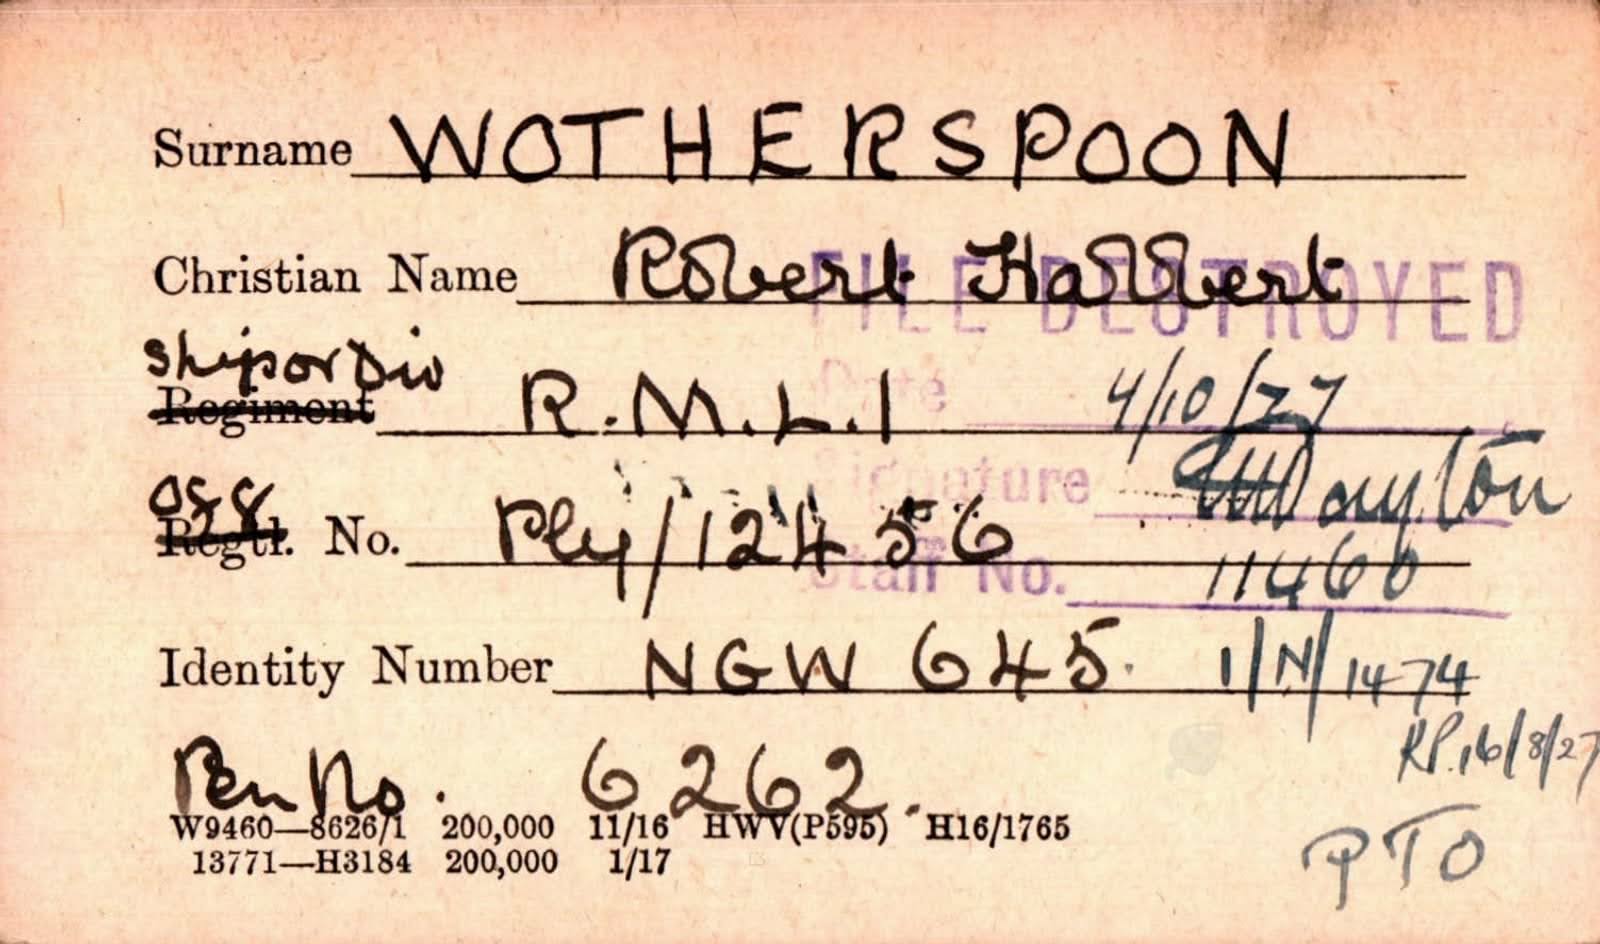 Surname WOTHERSPOON
Christian Name Robert Harbert
FILE DESTROYED
Ship or Div
Regiment R.M.L.I
Date 4/10/27
Signature
Off
Regtl. No. Ply/12456
Staff No. 11460
Identity Number NGW 645. 1/N/1474
RP. 16/8/27
Pen No. 6262.
W9460—8626/1 200,000 11/16 HWV(P595) H16/1765
13771—H3184 200,000 1/17
PTO